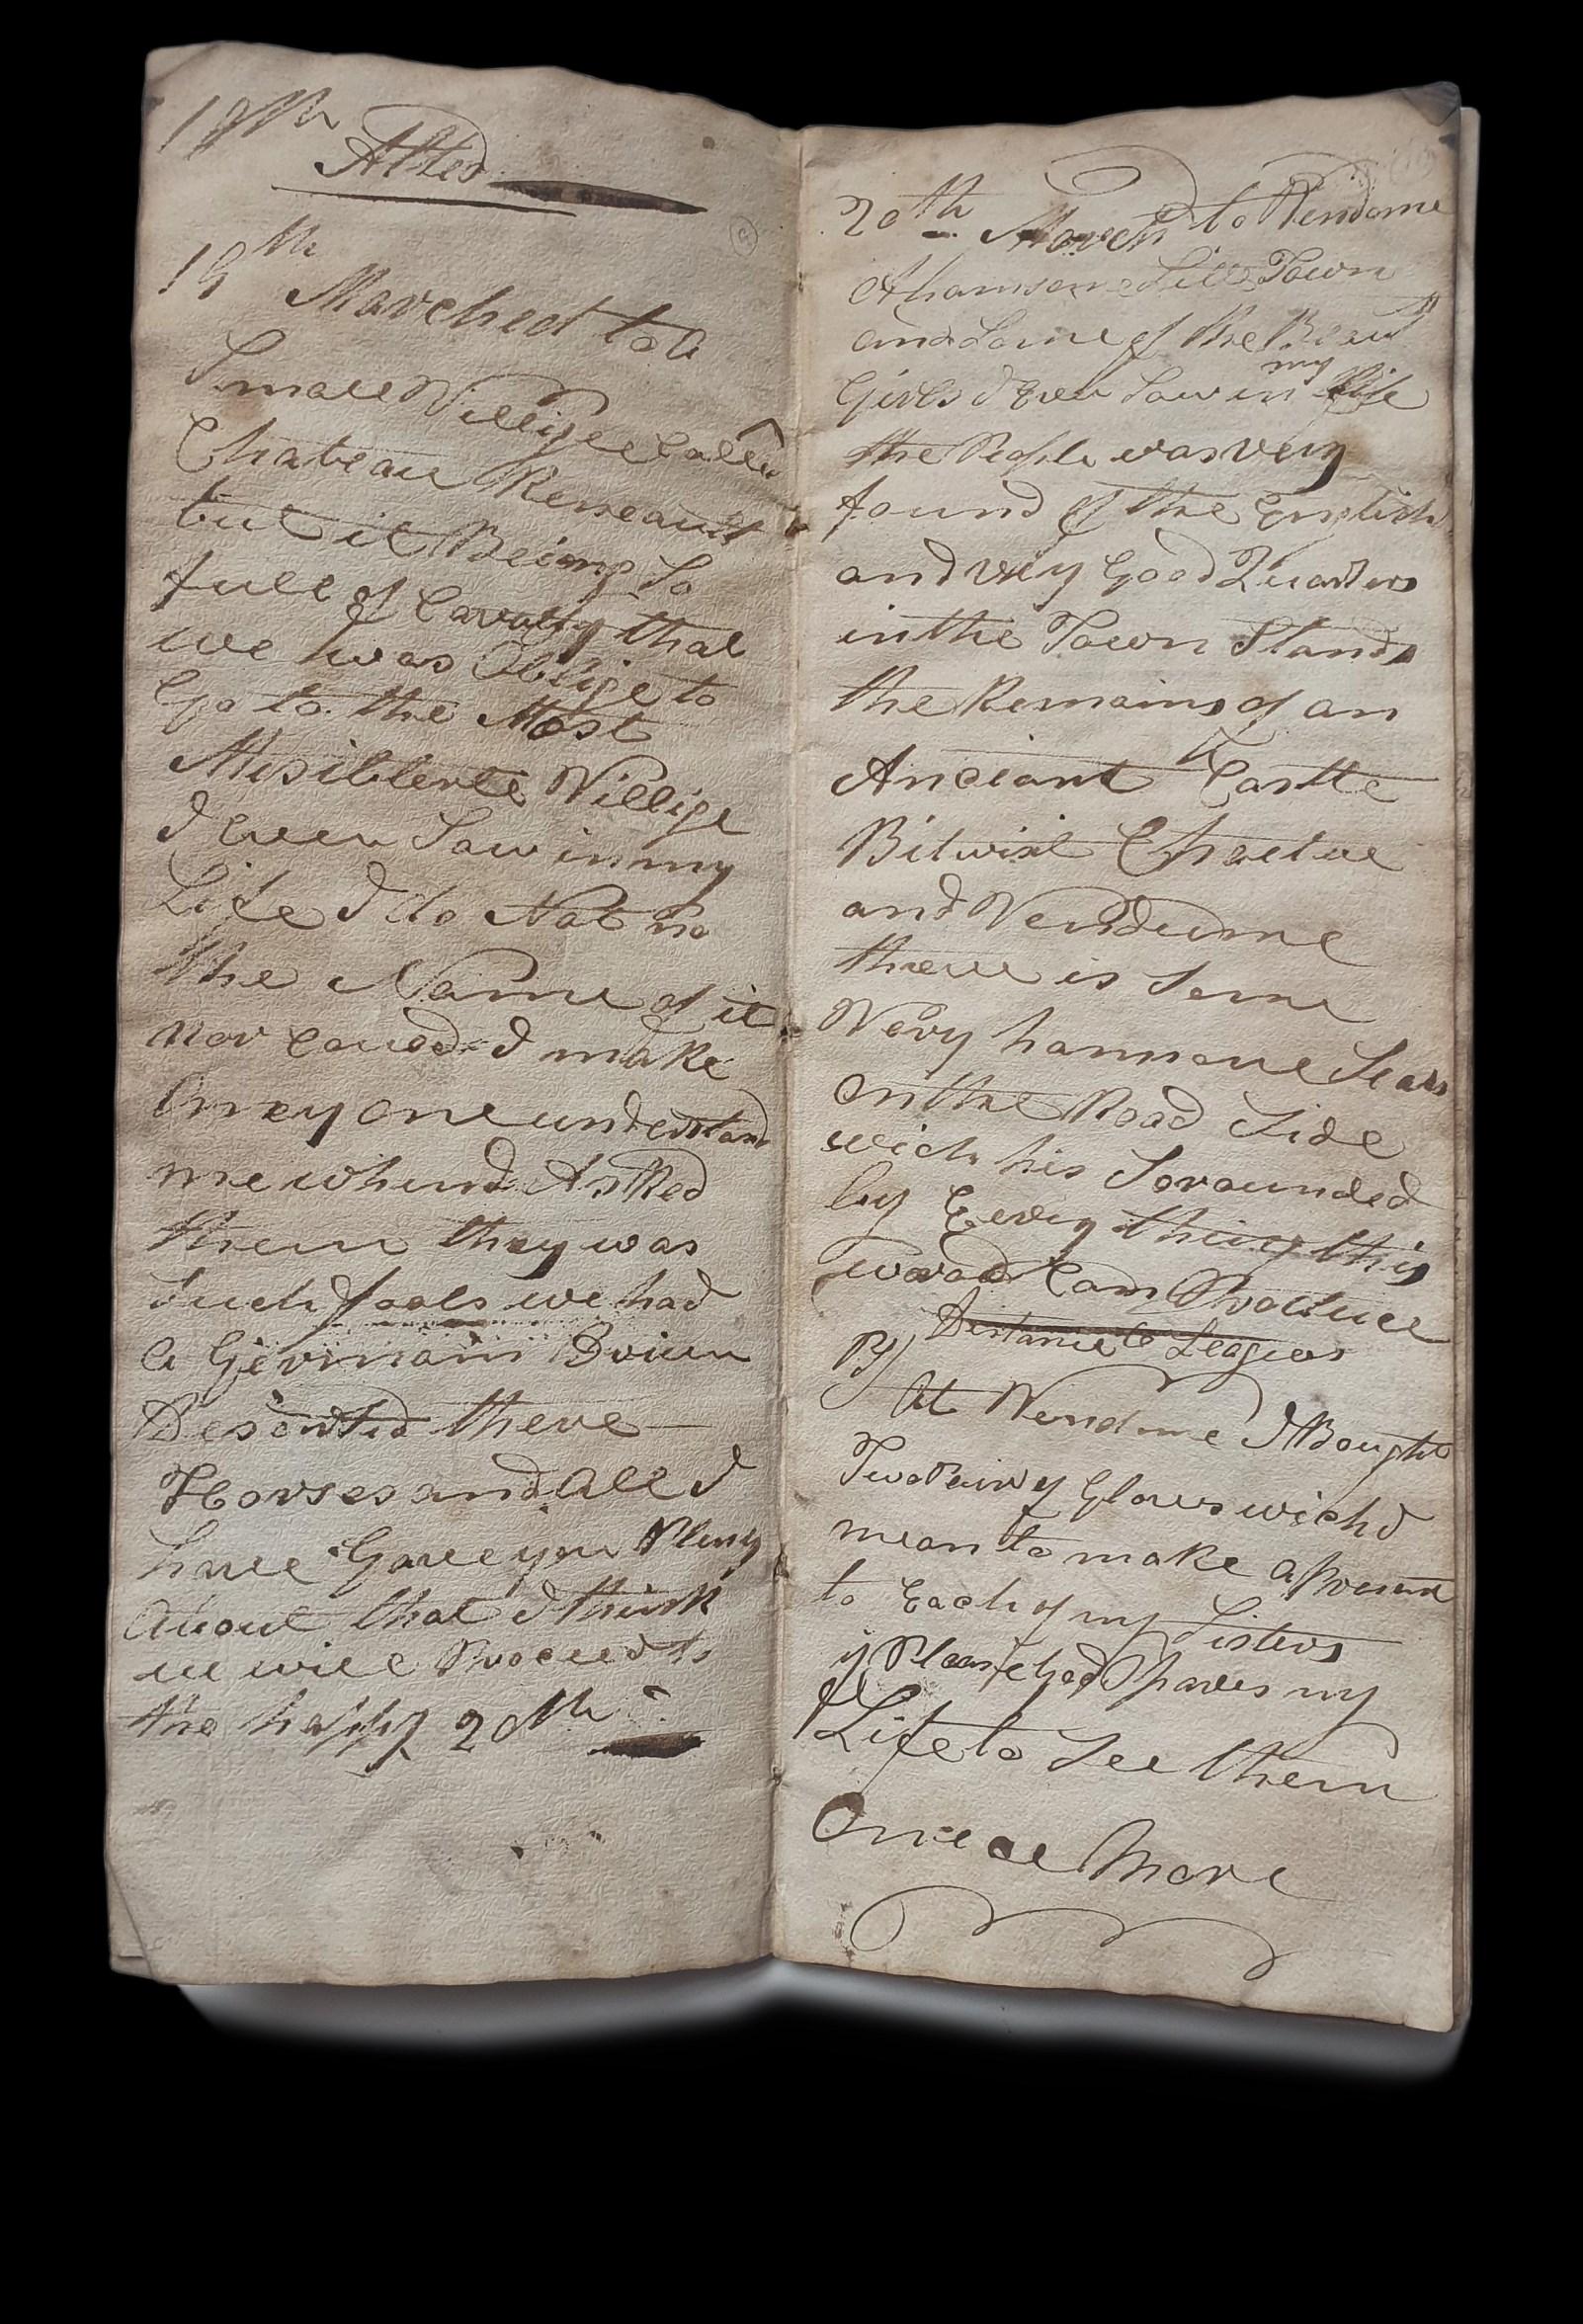 18th
Alted
19th
Marched to a
Small Villige Called
Chateau Reneault
but it Being So
full of Cavalry that
we was Oblige to
Go to the Most
Misiblerle Villige
I ever Saw in my
Life I do Not no
the Name of it
nor Coud I make
Aney one understand
me when I Asked
them they was
Such fools we had
a Germain Driver
Deserted there
Horses and All I
have Gave you Pleny
About that I think
we will Proceed to
the happy 20th
20th March to Vendome
A hamsome Litle Town
and Some of the Beaut
Girls I Ever Saw in my life
the People was very
found of the English
and very Good Quarters
in the Town Stands
the Remains of an
Anciant Castle
Bitwixt
and Vendume
there is Some
Very hamsome Seats
On the Road Side
wich his Sorounded
by Every thing this
World Can Produce
Distance Leagues
At Vendme I Bought
Two Pair of Gloves wich I
mean to make a Present
to Each of my Sisters
if Please God Spares my
Life to See them
Onece More